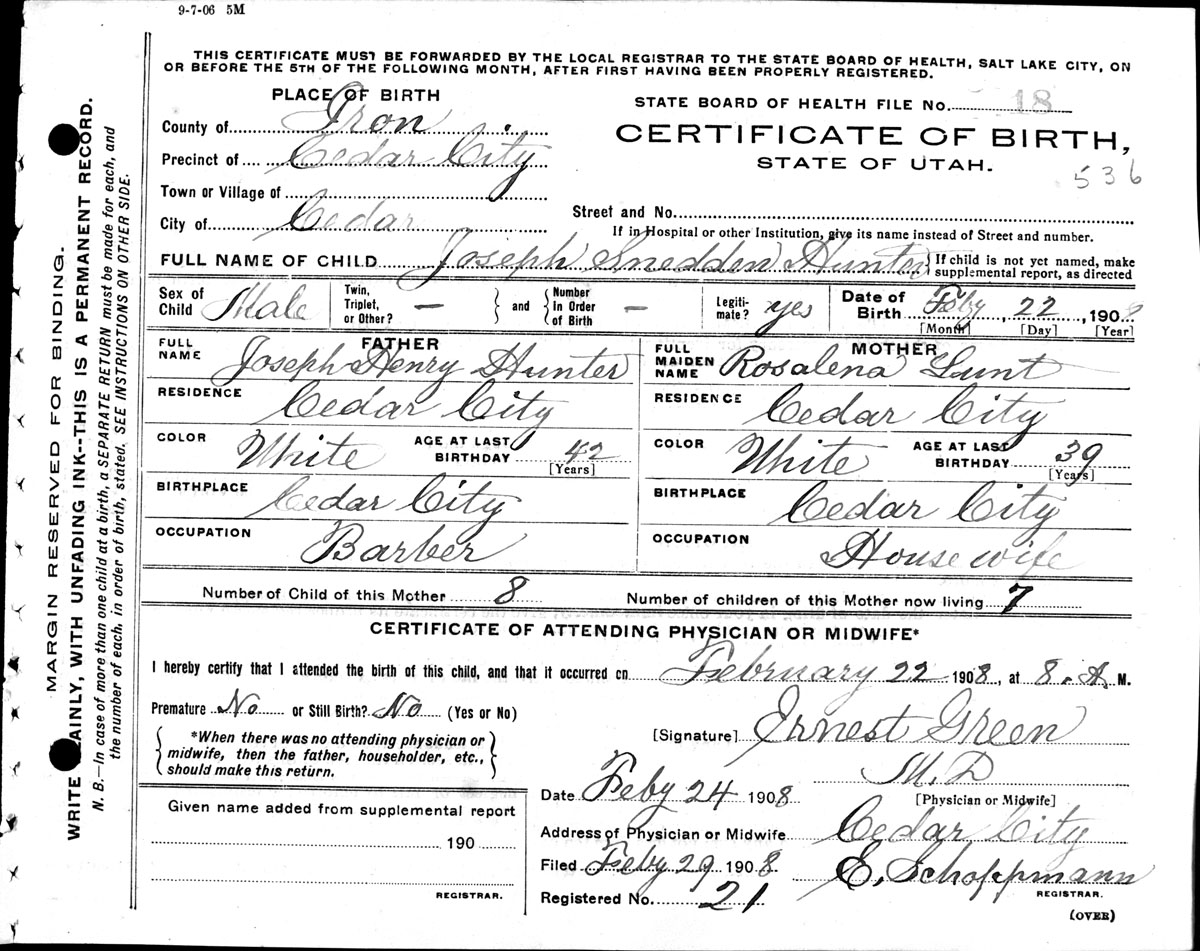 9-7-06 5M
THIS CERTIFICATE MUST BE FORWARDED BY THE LOCAL REGISTRAR TO THE STATE BOARD OF HEALTH, SALT LAKE CITY, ON
OR BEFORE THE 5TH OF THE FOLLOWING MONTH, AFTER FIRST HAVING BEEN PROPERLY REGISTERED.
PLACE OF BIRTH
STATE BOARD OF HEALTH FILE No. 18
County of Iron
CERTIFICATE OF BIRTH,
Precinct of Cedar City
STATE OF UTAH.
536
Town or Village of
City of Cedar
Street and No.
If in Hospital or other Institution, give its name instead of Street and number.
FULL NAME OF CHILD Joseph Snedden Hunter } If child is not yet named, make
supplemental report, as directed
Sex of Child Male
Twin, Triplet, or Other? — } and { Number in Order of Birth —
Legiti-mate? yes
Date of Birth Feby 22, 1908
[Month] [Day] [Year]
FATHER
FULL NAME Joseph Henry Hunter
RESIDENCE Cedar City
COLOR White AGE AT LAST BIRTHDAY 42
[Years]
BIRTHPLACE Cedar City
OCCUPATION Barber
MOTHER
FULL MAIDEN NAME Rosalena Lunt
RESIDENCE Cedar City
COLOR White AGE AT LAST BIRTHDAY 39
[Years]
BIRTHPLACE Cedar City
OCCUPATION House wife
Number of Child of this Mother 8 Number of children of this Mother now living 7
CERTIFICATE OF ATTENDING PHYSICIAN OR MIDWIFE*
I hereby certify that I attended the birth of this child, and that it occurred on February 22 1908, at 8. A. M.
Premature No or Still Birth? No (Yes or No)
*When there was no attending physician or
midwife, then the father, householder, etc.,
should make this return.
[Signature] Ernest Green
M.D
[Physician or Midwife]
Date Feby 24 1908
Given name added from supplemental report
190
REGISTRAR.
Address of Physician or Midwife Cedar City
Filed Feby 29 1908 E. Schoppmann
REGISTRAR.
Registered No. 21
(OVER)
MARGIN RESERVED FOR BINDING.
WRITE LAINLY, WITH UNFADING INK--THIS IS A PERMANENT RECORD.
N. B.—In case of more than one child at a birth, a SEPARATE RETURN must be made for each, and
the number of each, in order of birth, stated. SEE INSTRUCTIONS ON OTHER SIDE.